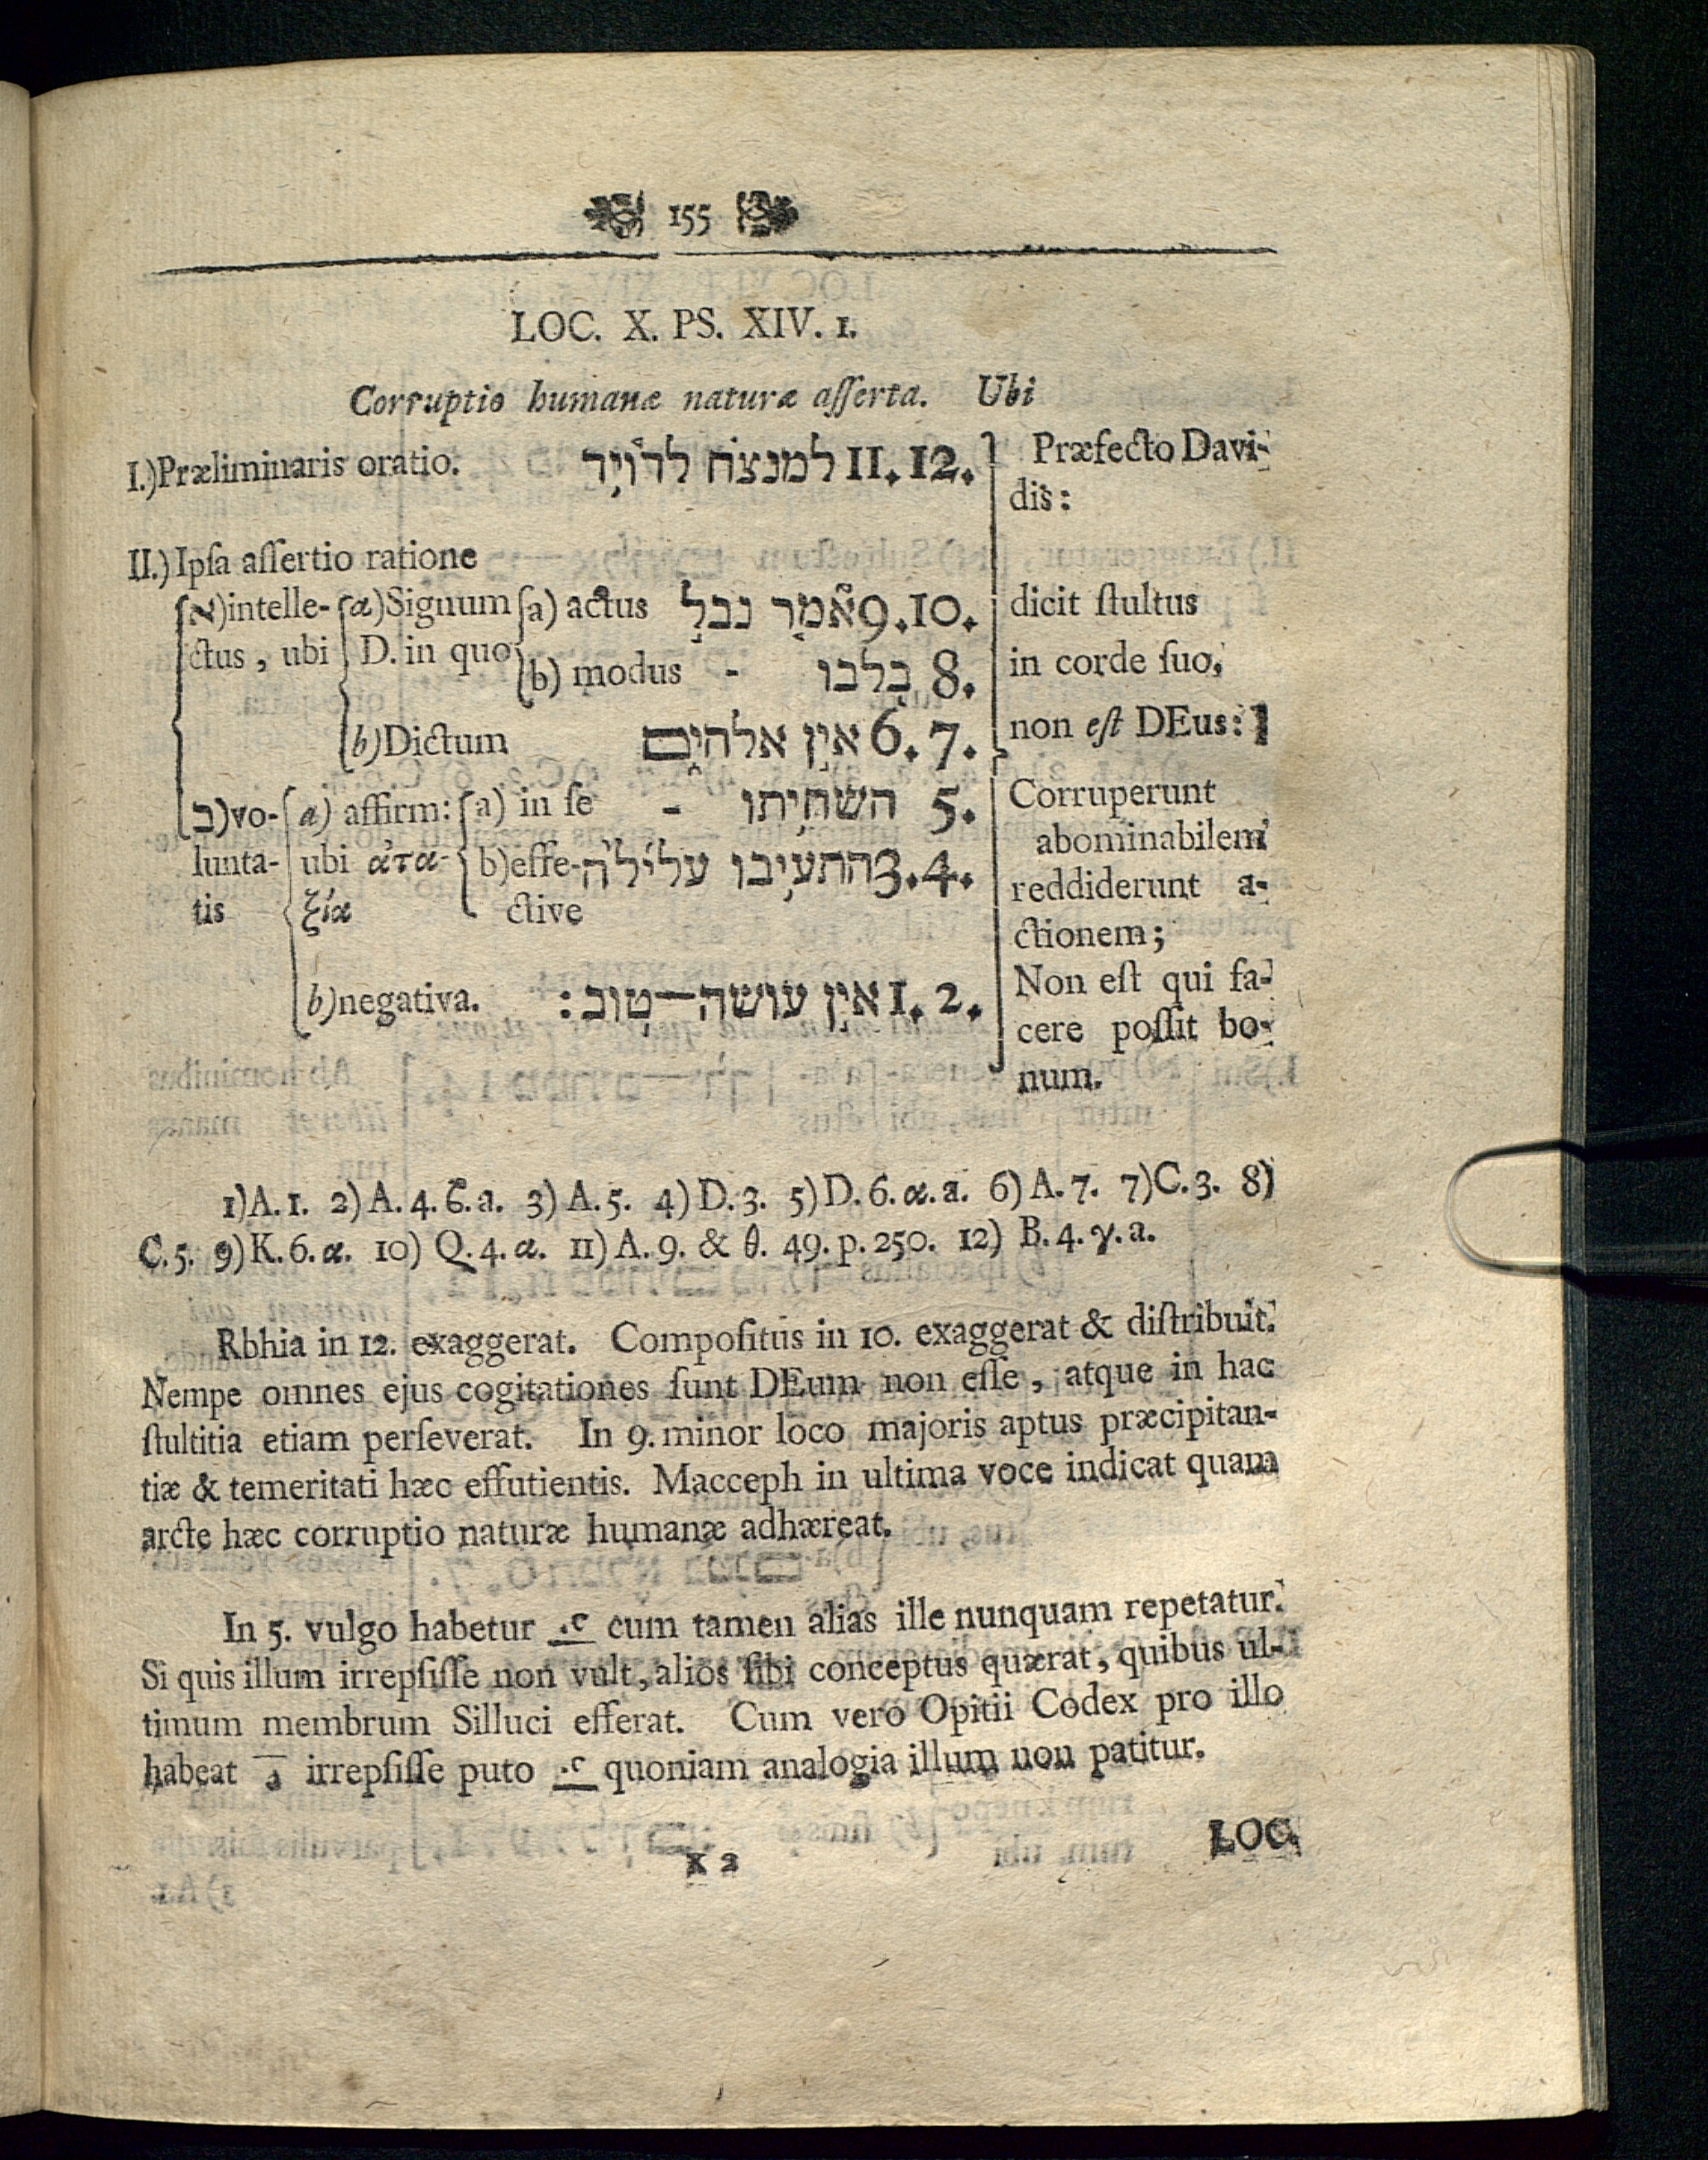 155
LOC. X. PS. XIV. 1.
Corruptio humanæ naturæ aſſerta. Ubi
I.)Præliminaris oratio. 11.12. למנצח לדויד Præfecto Davi-
dis:
II.) Ipſa aſſertio ratione
א)intelle- α)Signum a) actus 9.10. אמר נבל dicit ſtultus
ctus, ubi D. in quo b) modus - 8. בלבו in corde ſuo,
b)Dictum 6.7. אין אלהים non eſt DEus:
ב)vo- a) affirm: a) in ſe - 5. השחיתו Corruperunt
abominabilem
lunta- ubi ἀτα- b)effe- 3.4. התעיבו עלילה reddiderunt a-
tis ξία ctive ctionem;
b)negativa. 1.2. אין עושה—טוב: Non eſt qui fa-
cere poſſit bo-
num.
1)A.1. 2)A.4.ϐ.a. 3)A.5. 4)D.3. 5)D.6.α.a. 6)A.7. 7)C.3. 8)
C.5. 9)K.6.α. 10) Q.4.α. 11)A.9. & θ. 49. p.250. 12) B.4.γ.a.
Rbhia in 12. exaggerat. Compoſitus in 10. exaggerat & diſtribuit.
Nempe omnes ejus cogitationes ſunt DEum non eſſe, atque in hac
ſtultitia etiam perſeverat. In 9. minor loco majoris aptus præcipitan-
tiæ & temeritati hæc effutientis. Macceph in ultima voce indicat quam
arcte hæc corruptio naturæ humanæ adhæreat.
In 5. vulgo habetur cum tamen alias ille nunquam repetatur.
Si quis illum irrepſiſſe non vult, alios ſibi conceptus quærat, quibus ul-
timum membrum Silluci efferat. Cum vero Opitii Codex pro illo
habeat irrepſiſſe puto quoniam analogia illum non patitur.
X 2
LOC.